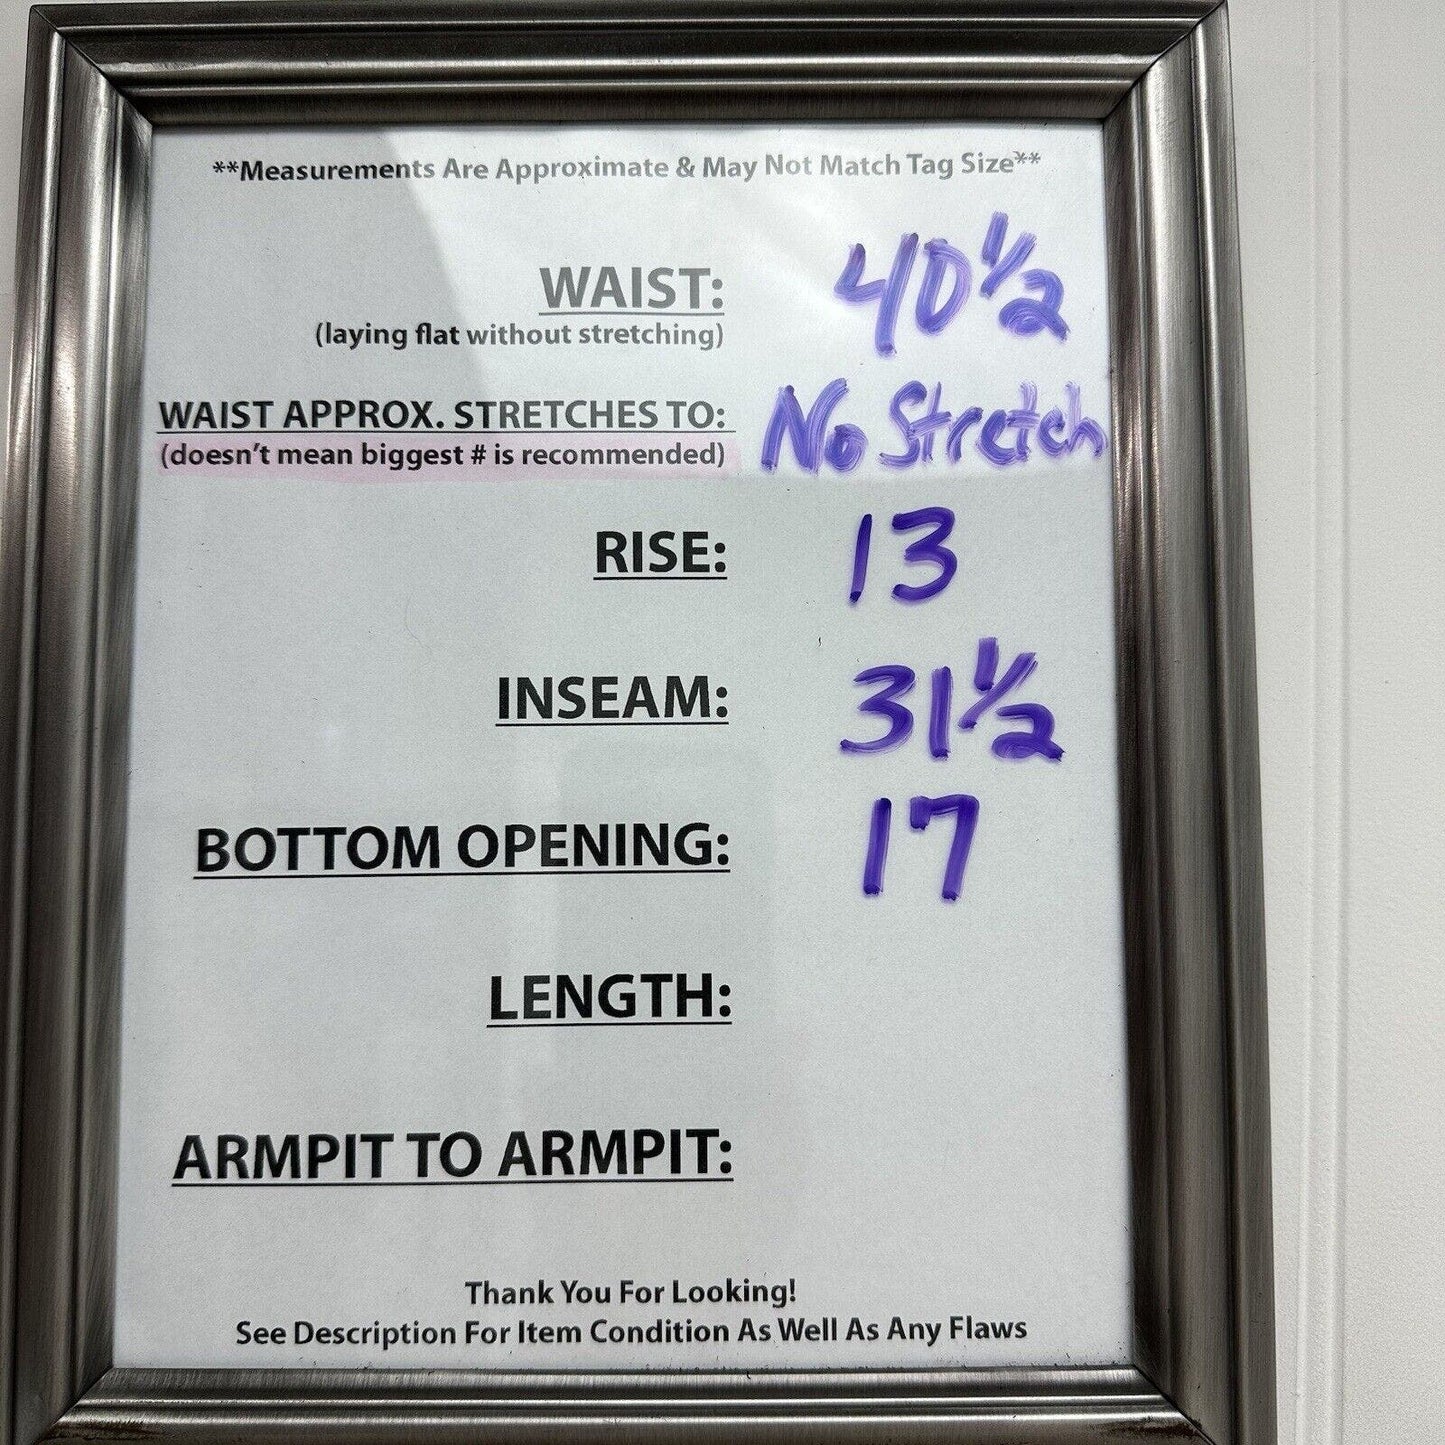 **Measurements Are Approximate & May Not Match Tag Size**
WAIST: 40 1/2
(laying flat without stretching)
WAIST APPROX. STRETCHES TO: No Stretch
(doesn't mean biggest # is recommended)
RISE: 13
INSEAM: 31 1/2
BOTTOM OPENING: 17
LENGTH:
ARMPIT TO ARMPIT:
Thank You For Looking!
See Description For Item Condition As Well As Any Flaws